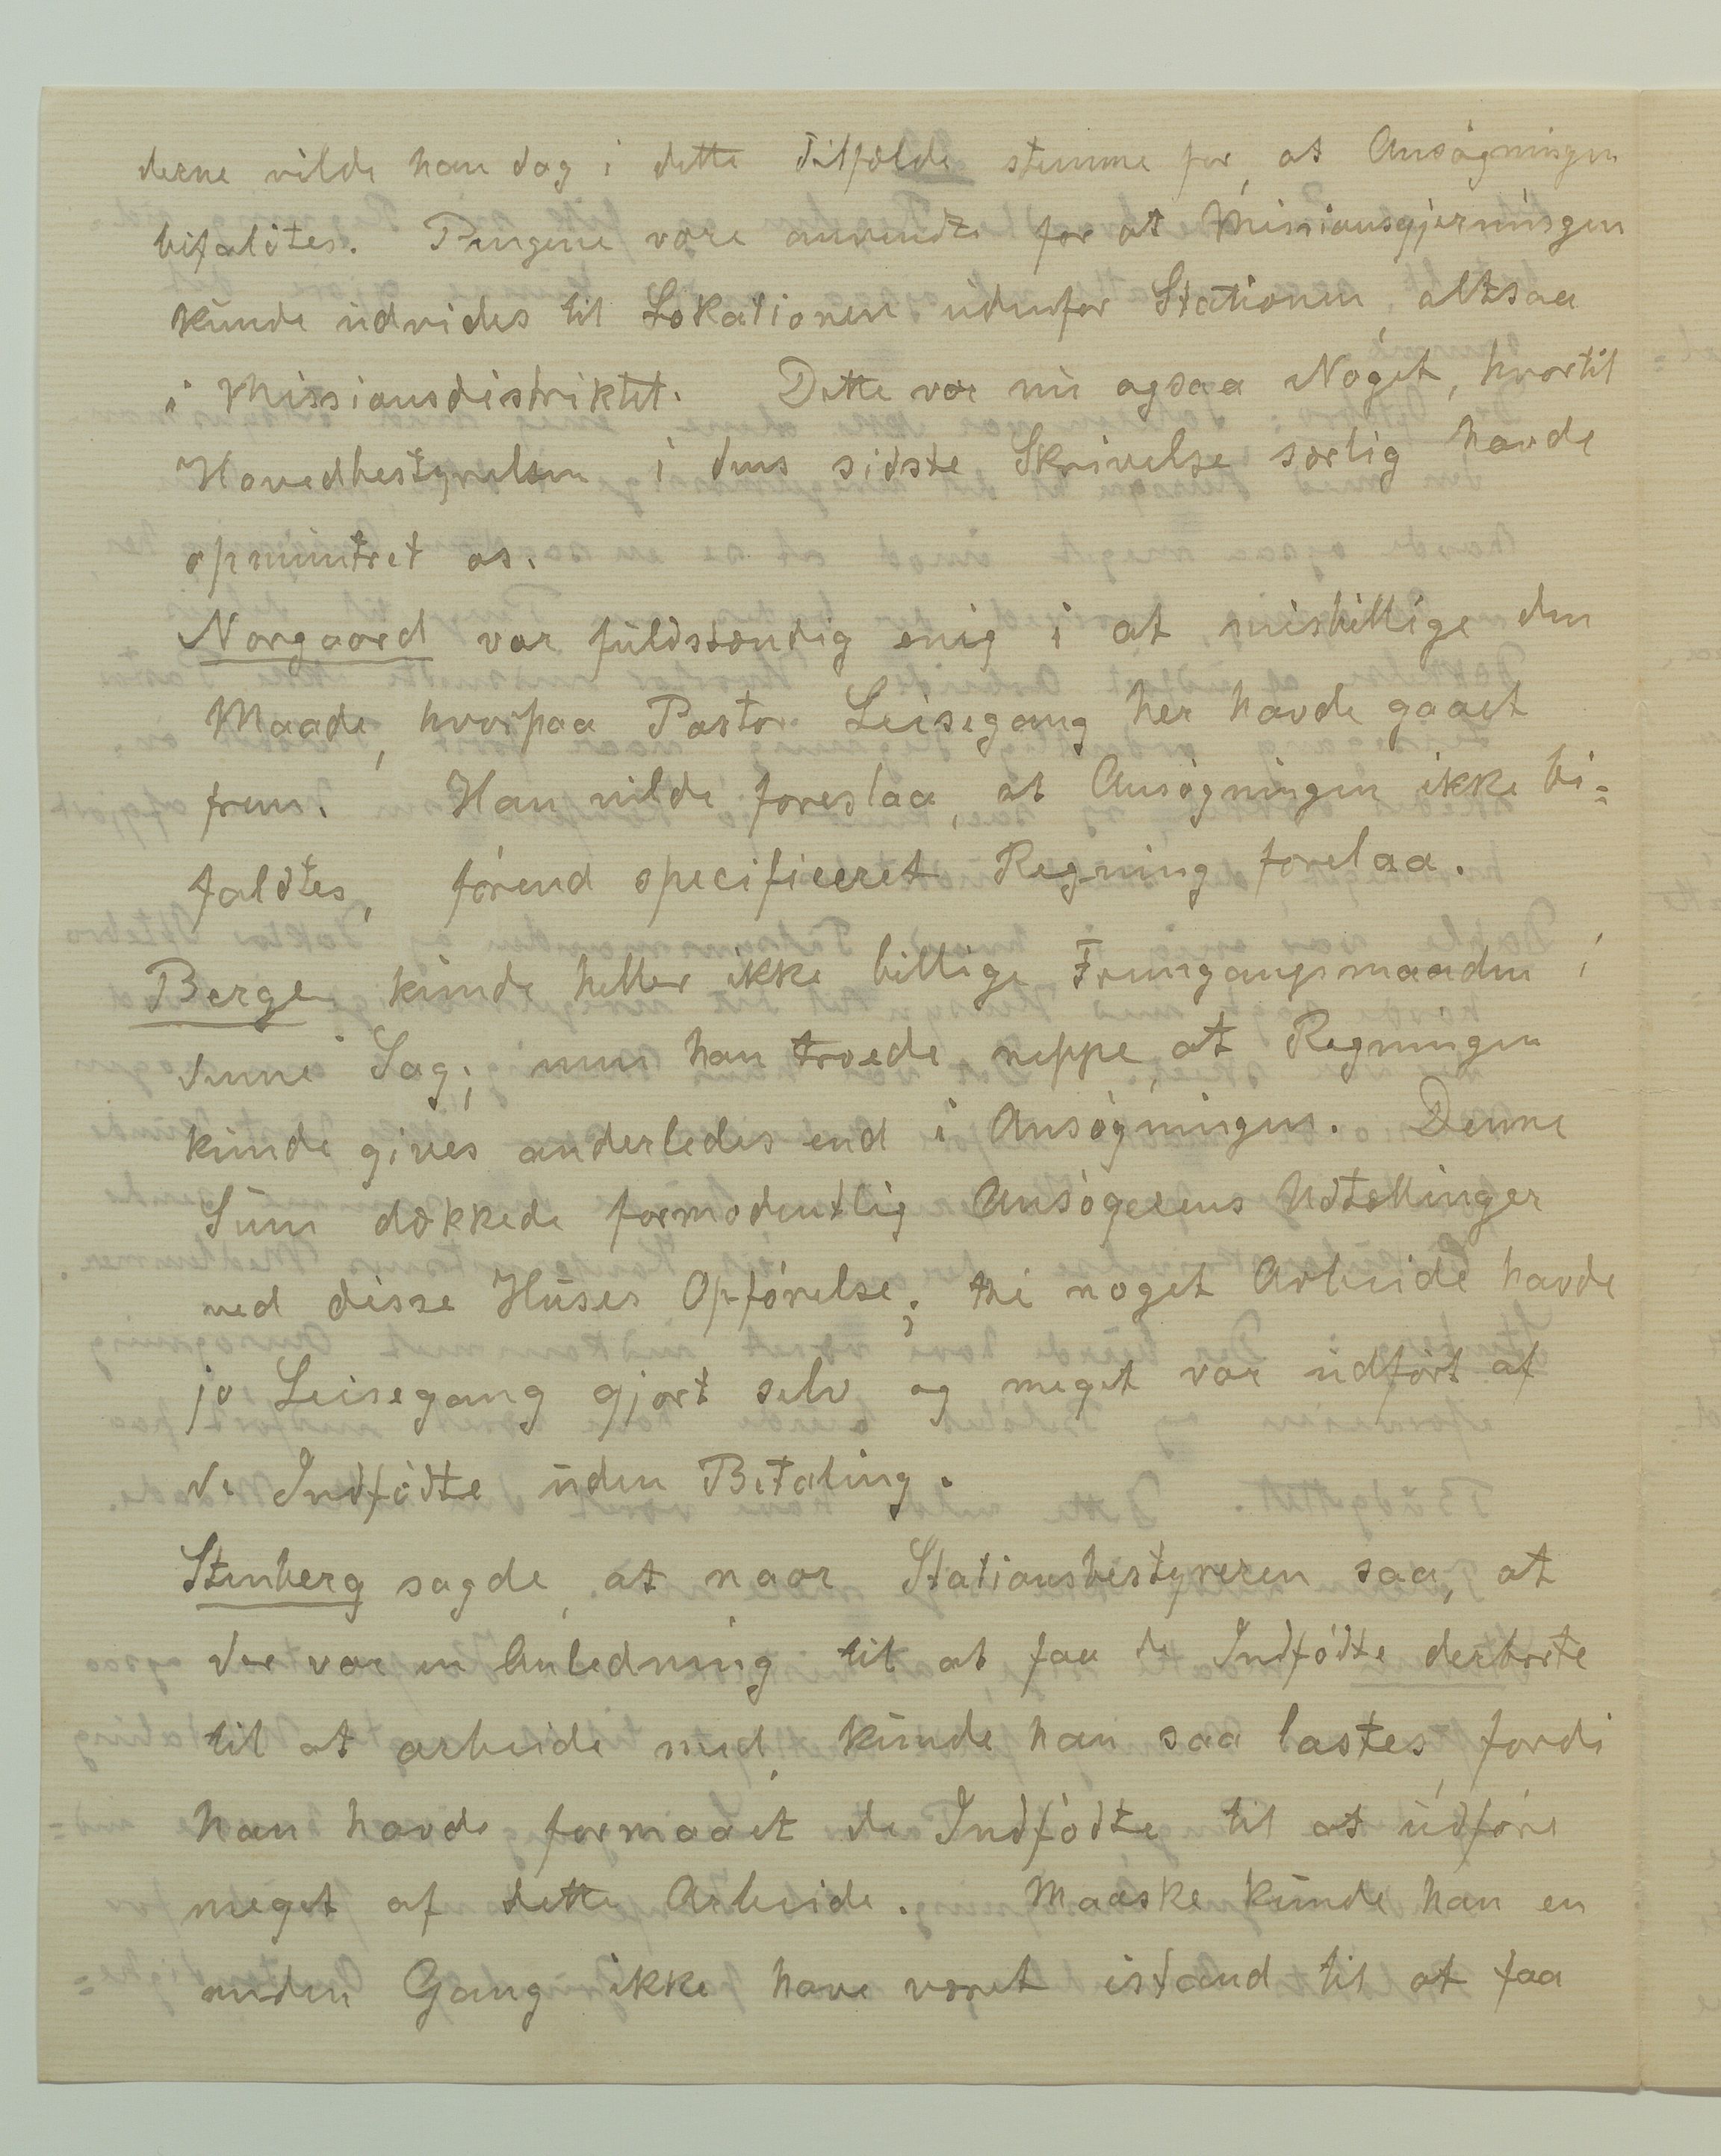 derne vilde han dog i dette Tilfælde stemme for, at Ansøgningen
bifaldtes. Pengene vare anvendte for at Missionsgjerningen
kunde udvides til Lokationen udenfor Stationen, altsaa
i Missionsdistriktet. Dette var nu ogsaa Noget, hvortil
Hovedbestyrelsen i dens sidste Skrivelse særlig havde
opmuntret os.
Norgaard var fuldstændig enig i at misbillige den
Maade, hvorpaa Pastor Leisegang her havde gaaet
frem. Han vilde foreslaa, at Ansøgningen ikke bi=
faldtes, førend specificeret Regning forelaa.
Berge kunde heller ikke billige Fremgangsmaaden i
denne Sag; men han troede neppe, at Regningen
kunde gives anderledes end i Ansøgningen. Denne
Sum dækkede formodentlig Ansøgerens Udtellinger
ved disse Huses Opførelse; thi noget Arbeide havde
jo Leisegang gjort selv og meget var udført af
de Indfødte uden Betaling.
Stenberg sagde, at naar Stationsbestyreren saa, at
der var en Anledning til at faa de Indfødte derborte
til at arbeide med, kunde han saa lastes, fordi
han havde formaaet de Indfødte til at udføre
meget af dette Arbeide. Maaske kunde han en
anden Gang ikke have været istand til at faa